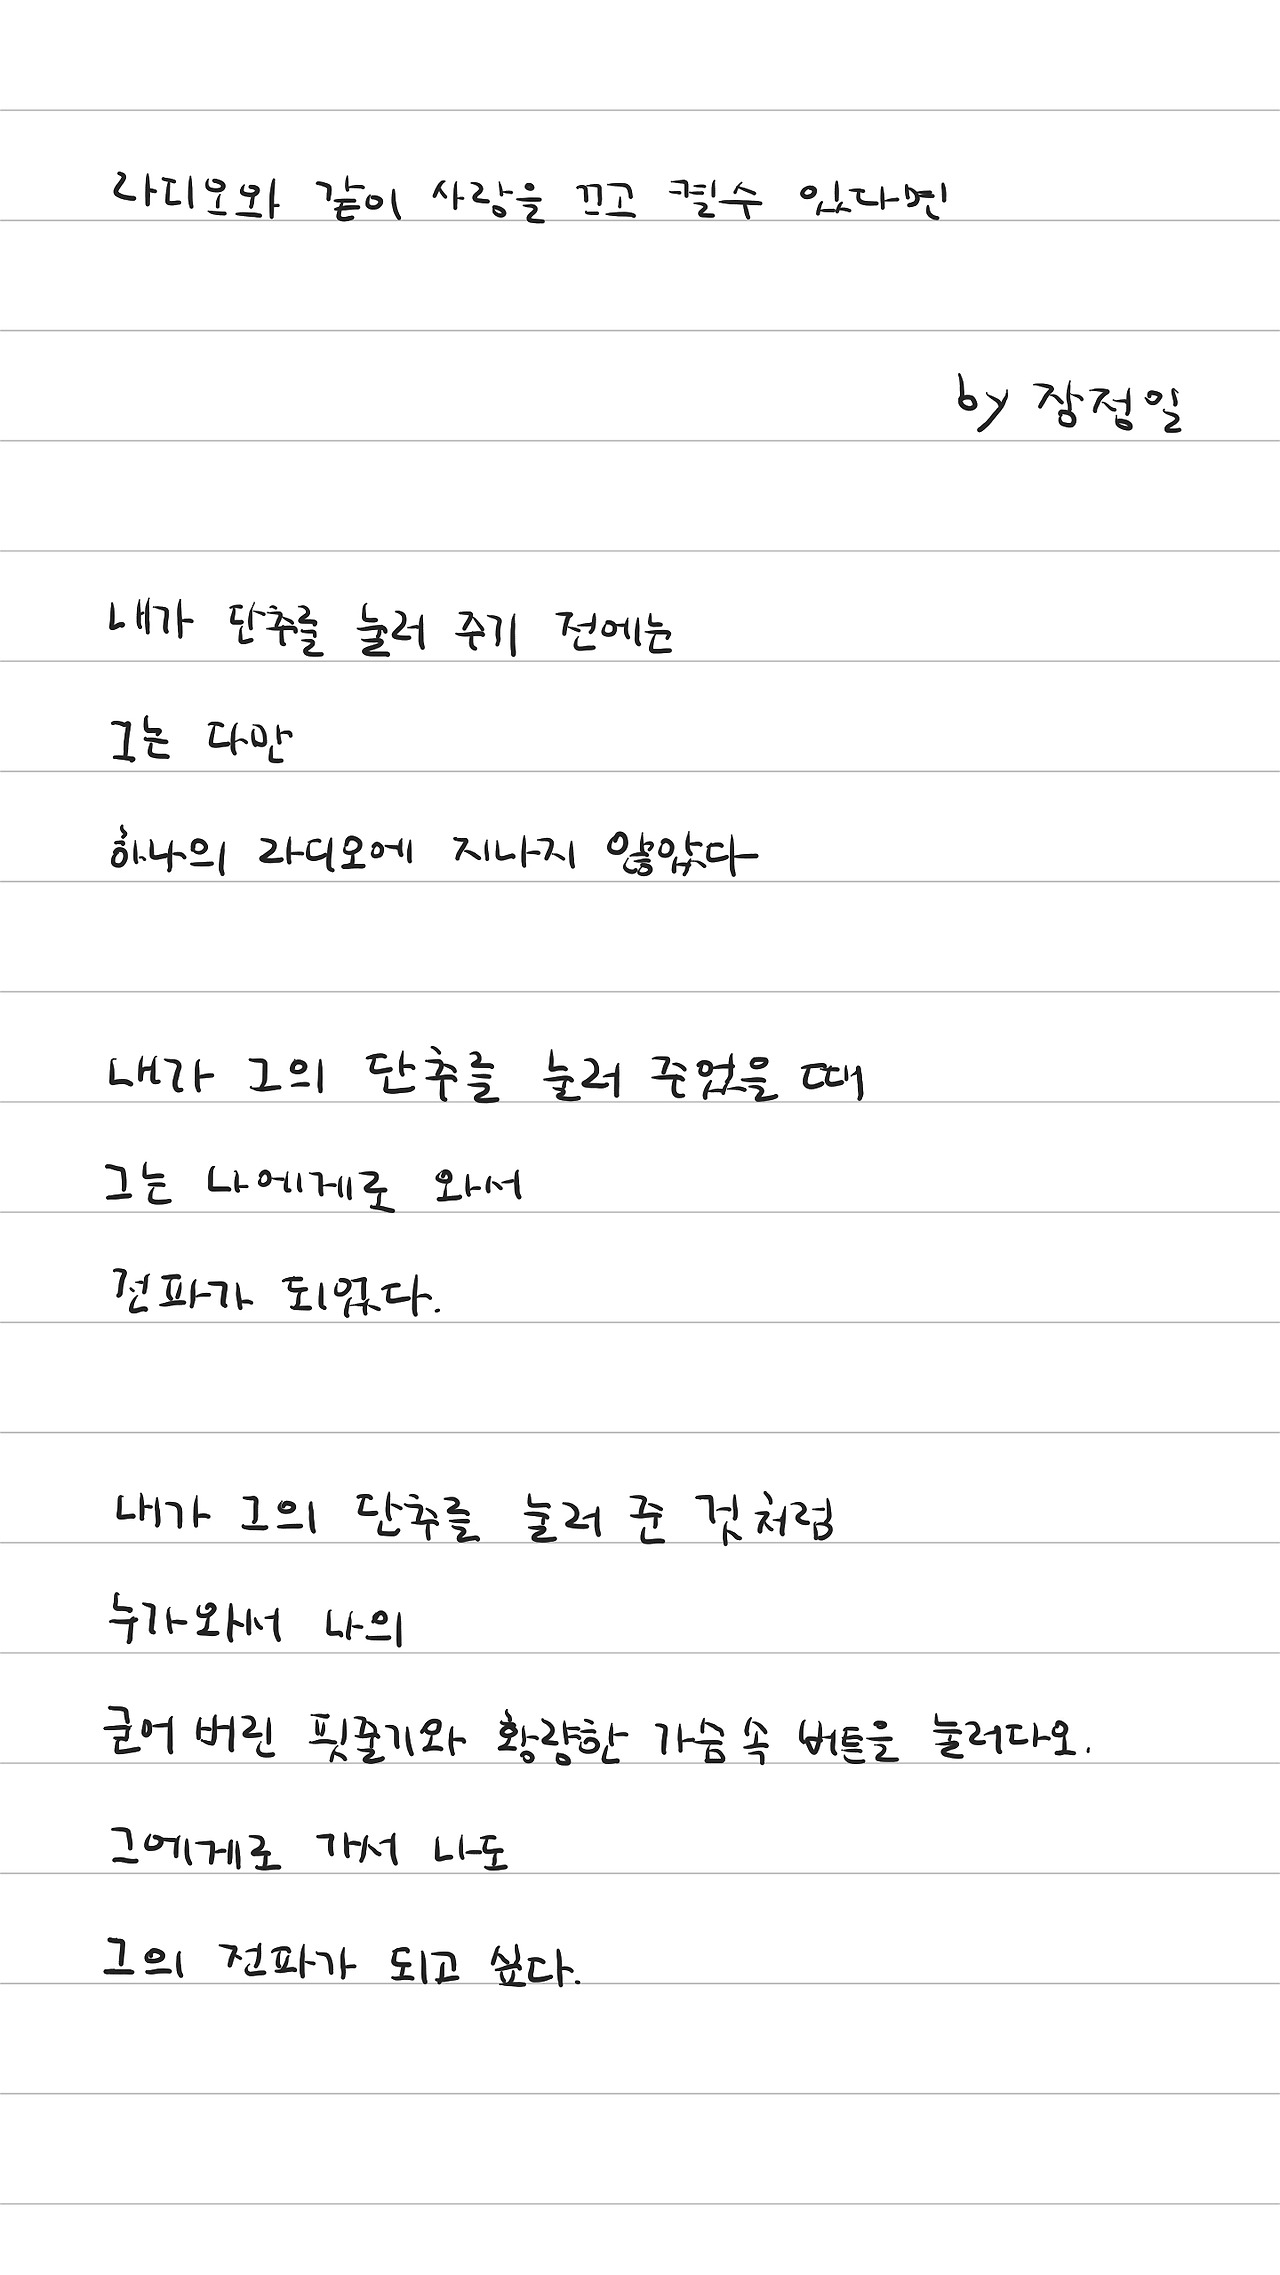 라디오와 같이 사랑을 끄고 켤수 있다면
by 장정일
내가 단추를 눌러 주기 전에는
그는 다만
하나의 라디오에 지나지 않았다
내가 그의 단추를 눌러 주었을 때
그는 나에게로 와서
전파가 되었다.
내가 그의 단추를 눌러 준 것처럼
누가와서 나의
굳어 버린 핏줄기와 황량한 가슴 속 버튼을 눌러다오.
그에게로 가서 나도
그의 전파가 되고 싶다.